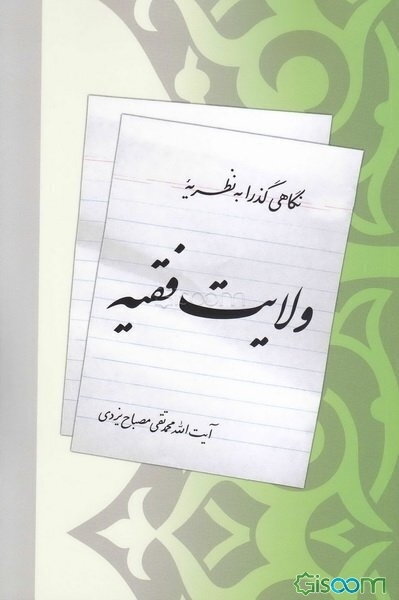 نگاهی گذرا به نظریهٔ
ولایت فقیه
آیت الله محمد تقی مصباح یزدی
Gisoom
Gisoom